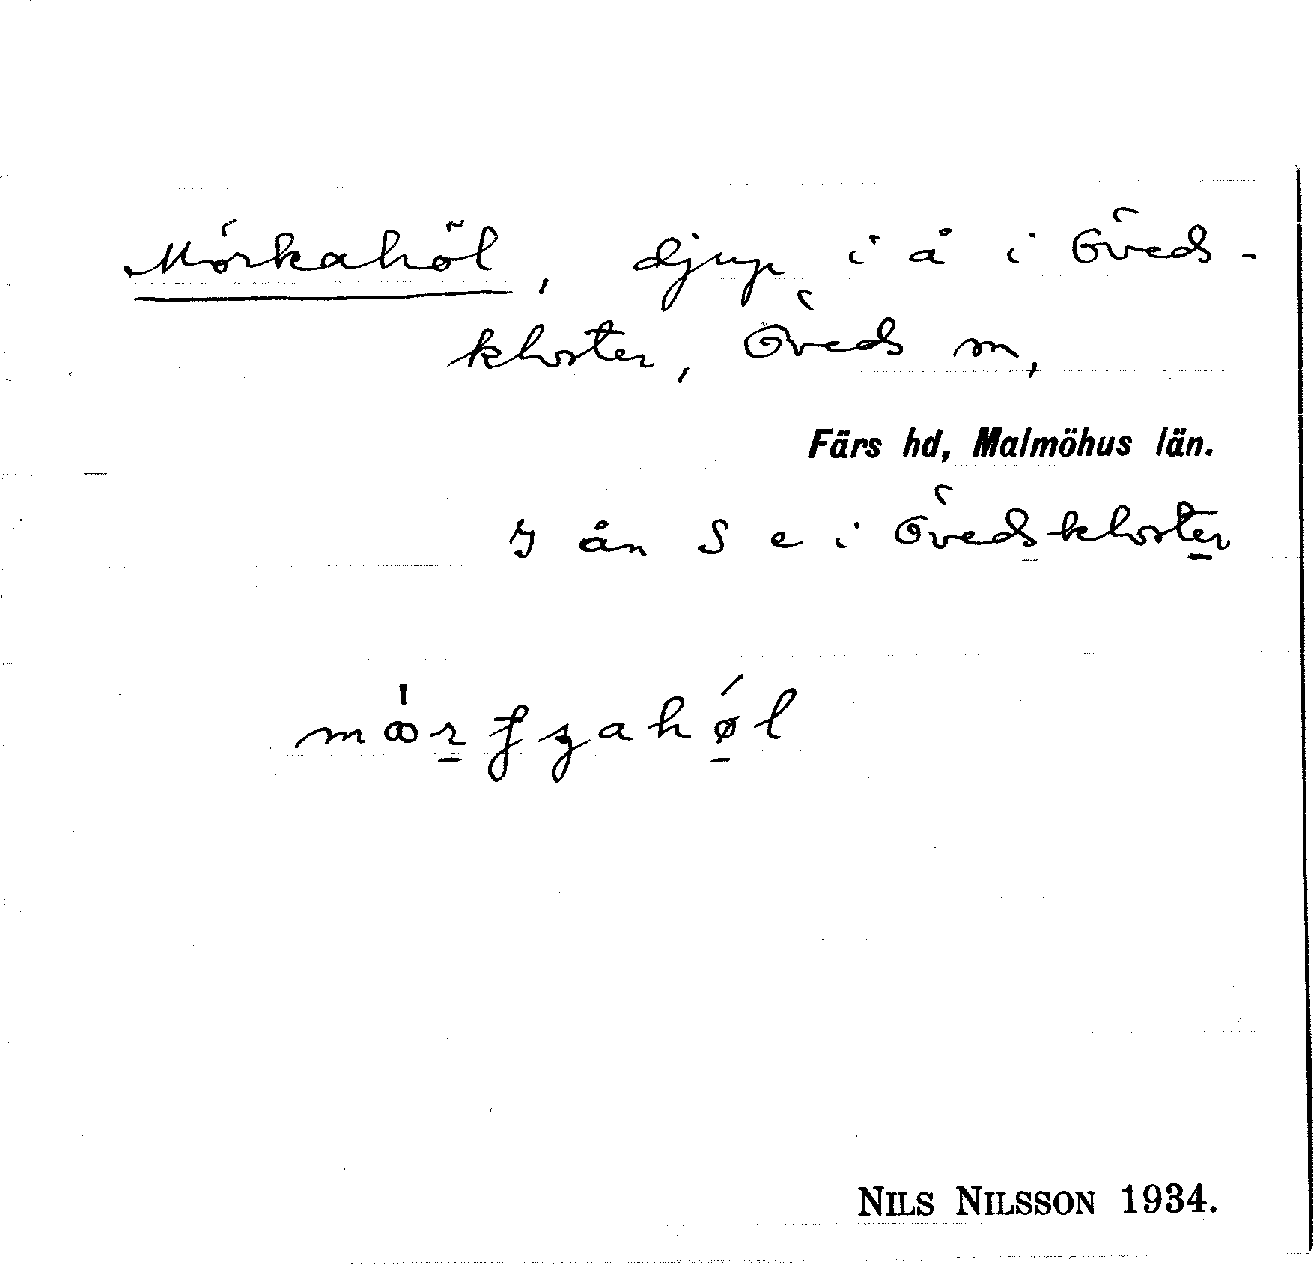 Mörkahöl, djup i å i Öveds-
kloster, Öveds sn,
Färs hd, Malmöhus län.
I ån S e i Övedskloster
NILS NILSSON 1934.